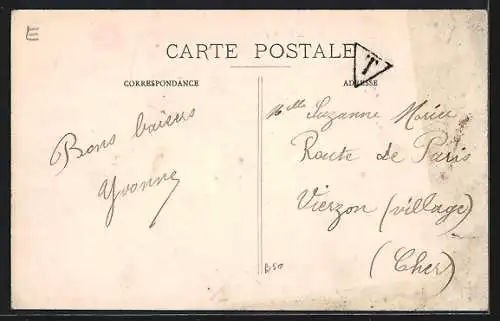 E
CARTE POSTALE
T
CORRESPONDANCE
ADRESSE
Bons baisers
Yvonne
Mlle Suzanne
Route de Paris
Vierzon (village)
(Cher)
B50